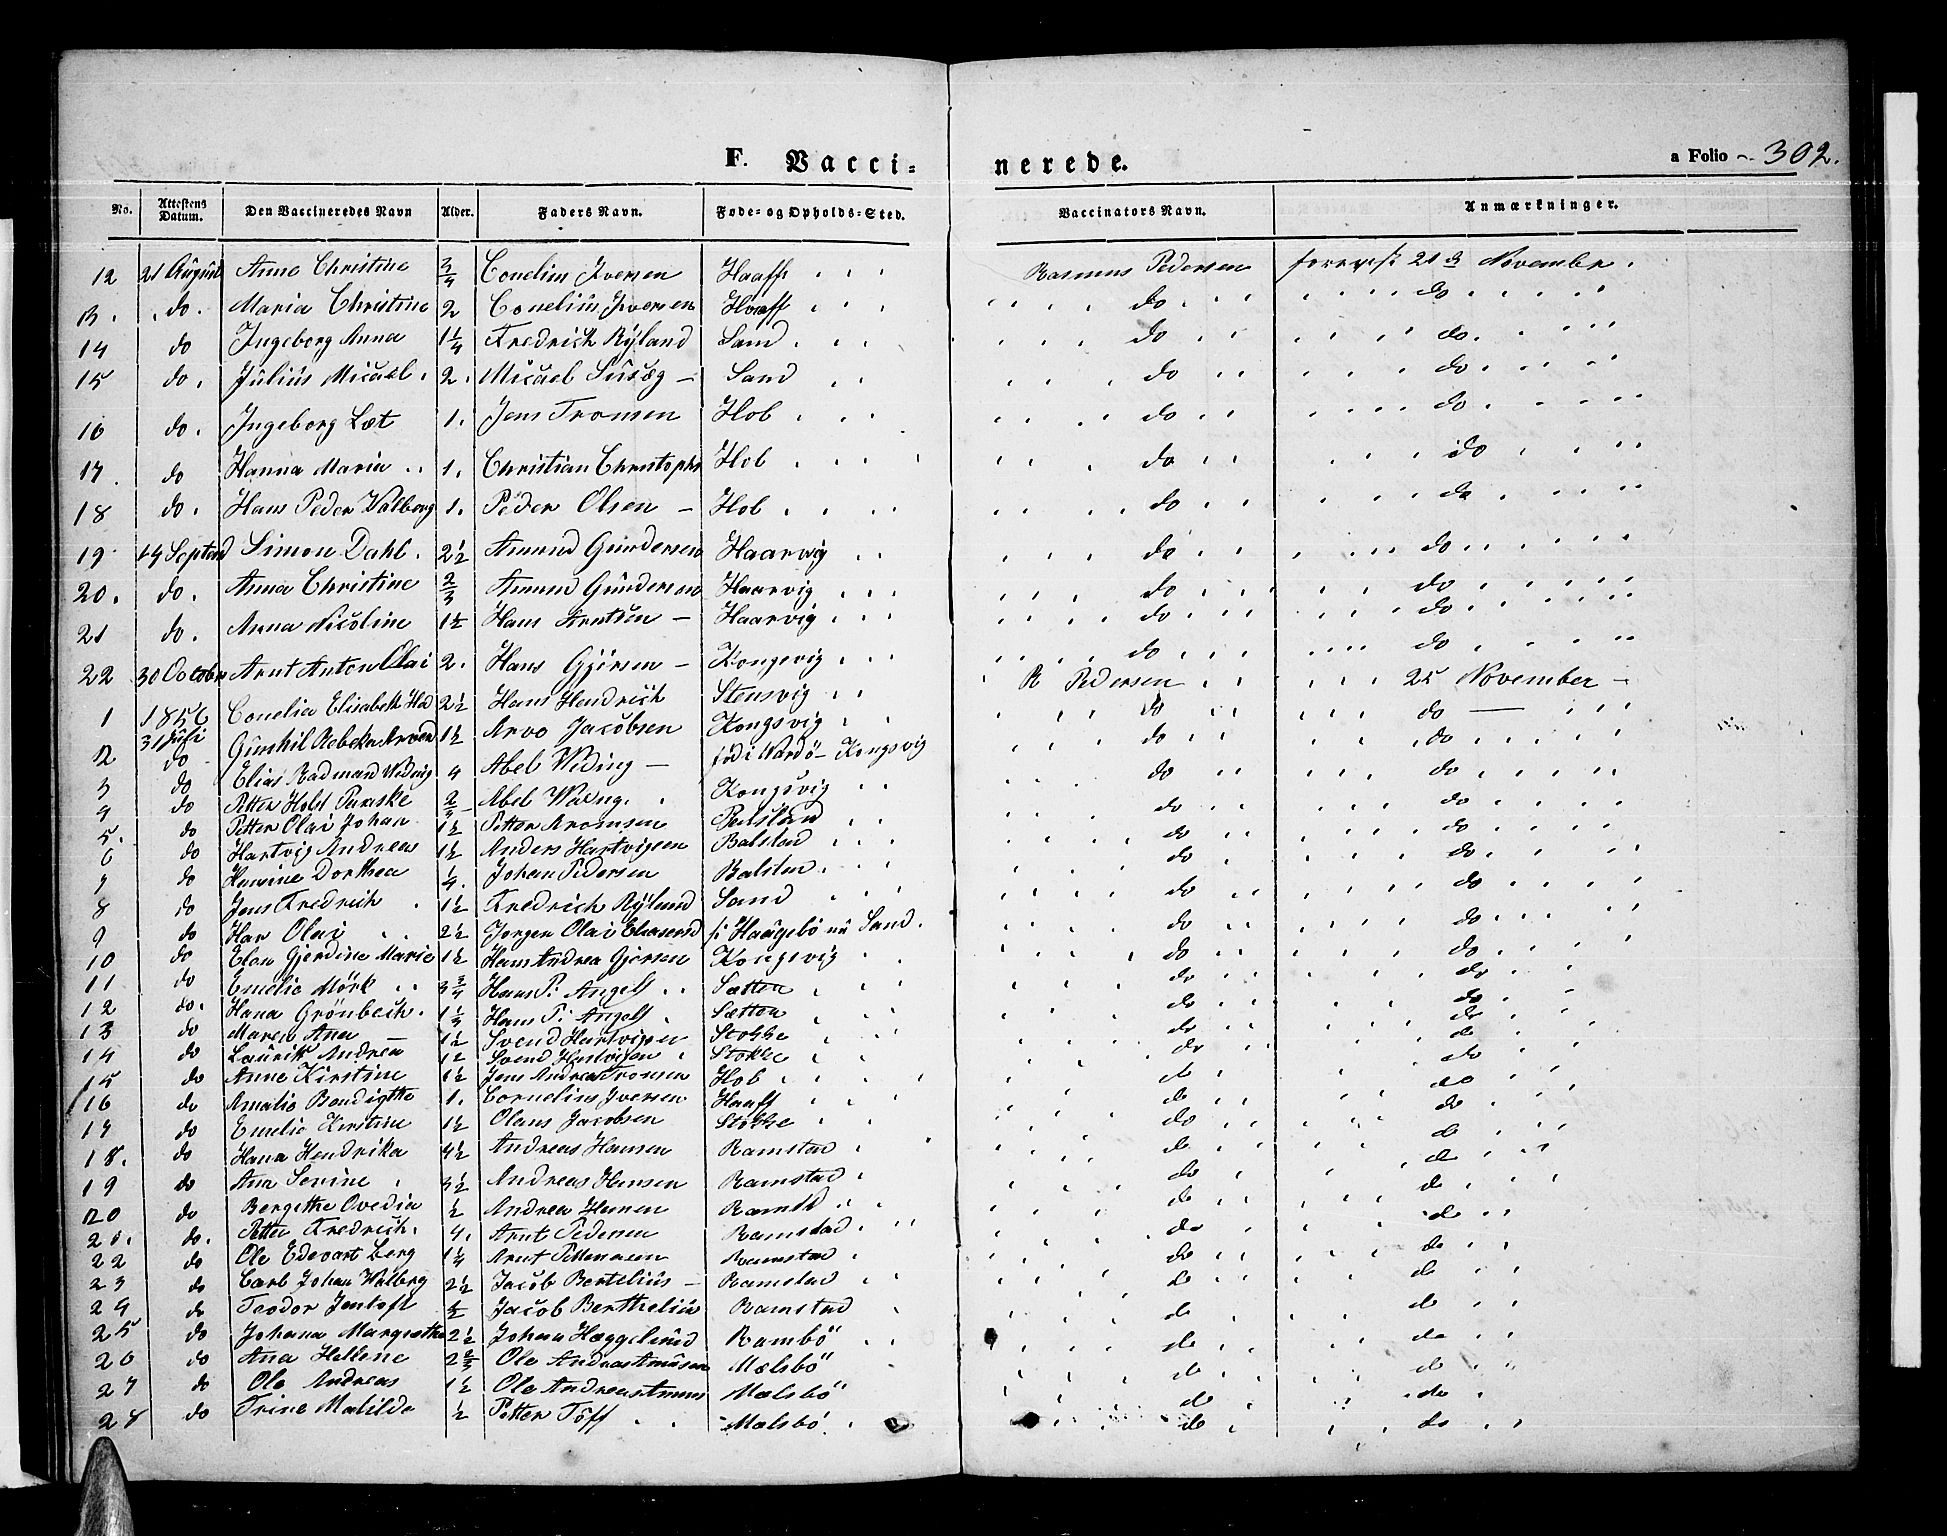 F. Vacci- nerede. a Folio 302.
No. Attestens Datum. Den Vaccineredes Navn Alder. Faders Navn. Føde- og Opholds-Sted. Vaccinators Navn. Anmærkninger.
12 21 August Anne Christine 3/4 Conelius Iversen Haaff Rasmus Pedersen 21 November
13. do. Maria Christine 2 Conelius Iversen Haaff do do
14 do Ingeborg Anna 1 1/4 Fredrich Rÿland Sand do do.
15 do. Julius Micael 2. Micael Sand do do
16 do. Ingeborg Læt 1. Jens Tromsen Hob do do
17 do Hanna Maria 1. Christian Christophs Hob do do
18 do. Hans Peder Valborg 1. Peder Olsen Hob do do
19 14 Septend Simon Dahl. 2 1/2 Amund Gundersen Haarvig do do
20. do. Anna Christine 2/3 Amund Gundersen Haarvig do do
21 do. Anna Nicoline 1 1/2 Hans Arntsen Haarvig do do
22 30 Octobr Arnt Anton Olai 2. Hans Gjersen Kongsvig do do
1 1856 31 Juli Conelia Elisabeth 2 1/2 Hans Hendrich Stensvig R Pedersen 25 November
2 do Gunhil Rebekka 1 1/2 Arvo Jacobsen Kongsvig do do
3 do Elias Radmand Widing 4 Abel Widing fød i Wardö Kongsvig do do
4 do Petter Holst 2/3 Abel Kongsvig do do
5. do Petter Olai Johan 1 1/2 Petter Aromsen Balstad do do
6 do Hartvig Andreas 1 1/2 Anders Hartvigsen Balstad do do
7 do Dorthea 1/4. Johan Pedersen Balstad do do
8 do Jens Fredrich 1 1/2 Fredrich Rÿland Sand do do
9 do Har Olai 2 1/2 Jorgen Olai Sand. do do
10 do Elen Gjerdine Marie 1 1/2 Hans Andrea Gjersen Kongsvig do do
11 do Emelie Mörk 3 3/4 Hans P. Angell Sætten do do
12 do. Hana Grönbech. 1 1/3 Hans P. Angell Sætten do do
13 do Maren Ana 1 1/2 Svend Hartvigsen Stokke do do
14 do Laurits Andrea 1 1/2 Svend Hartvigsen Stokke do do
15 do Anne Kirstine 1 1/2 Jens Andreas Tromsen Hob do do
16 do Amalie Bendigthe 1. Cornelius Iversen Haaff do do
17 do Emelie Kirstine 1 1/2 Olaus Jacobsen Stokke do do
18. do Hana Hendrika 4 1/2 Andreas Hansen Ramstad do do
19 do Ana Sevine 3 1/2 Andreas Hansen Ramstad do do
20 do Bergethe Ovedia 1/2 Andrea Hansen Ramstd do do
21. do. Petter Fredrich. 4. Arnt Pedersen Ramstad do do
22 do Ole Edevart Berg 1 1/4 Arnt Pettersen Ramstad do do
23 do Carl Johan Walberg 2 1/2 Jacob Bertelius Ramstad do do
24 do Teodor Jentoft 1/2 Jacob Berthelius Ramstad do do
25 do Johana Margrethe 2 1/2 Johan Hæggelund Rambö do do
26 do Ana Hellene 2 2/3 Ole Andreas Amunsen Mælsbö do do
27 do Ole Andreas 1 1/2 Ole Andreas Amuns Mælsbö do do
28 do Trine Matilde 1/2 Petter Töff Mælsbö do do